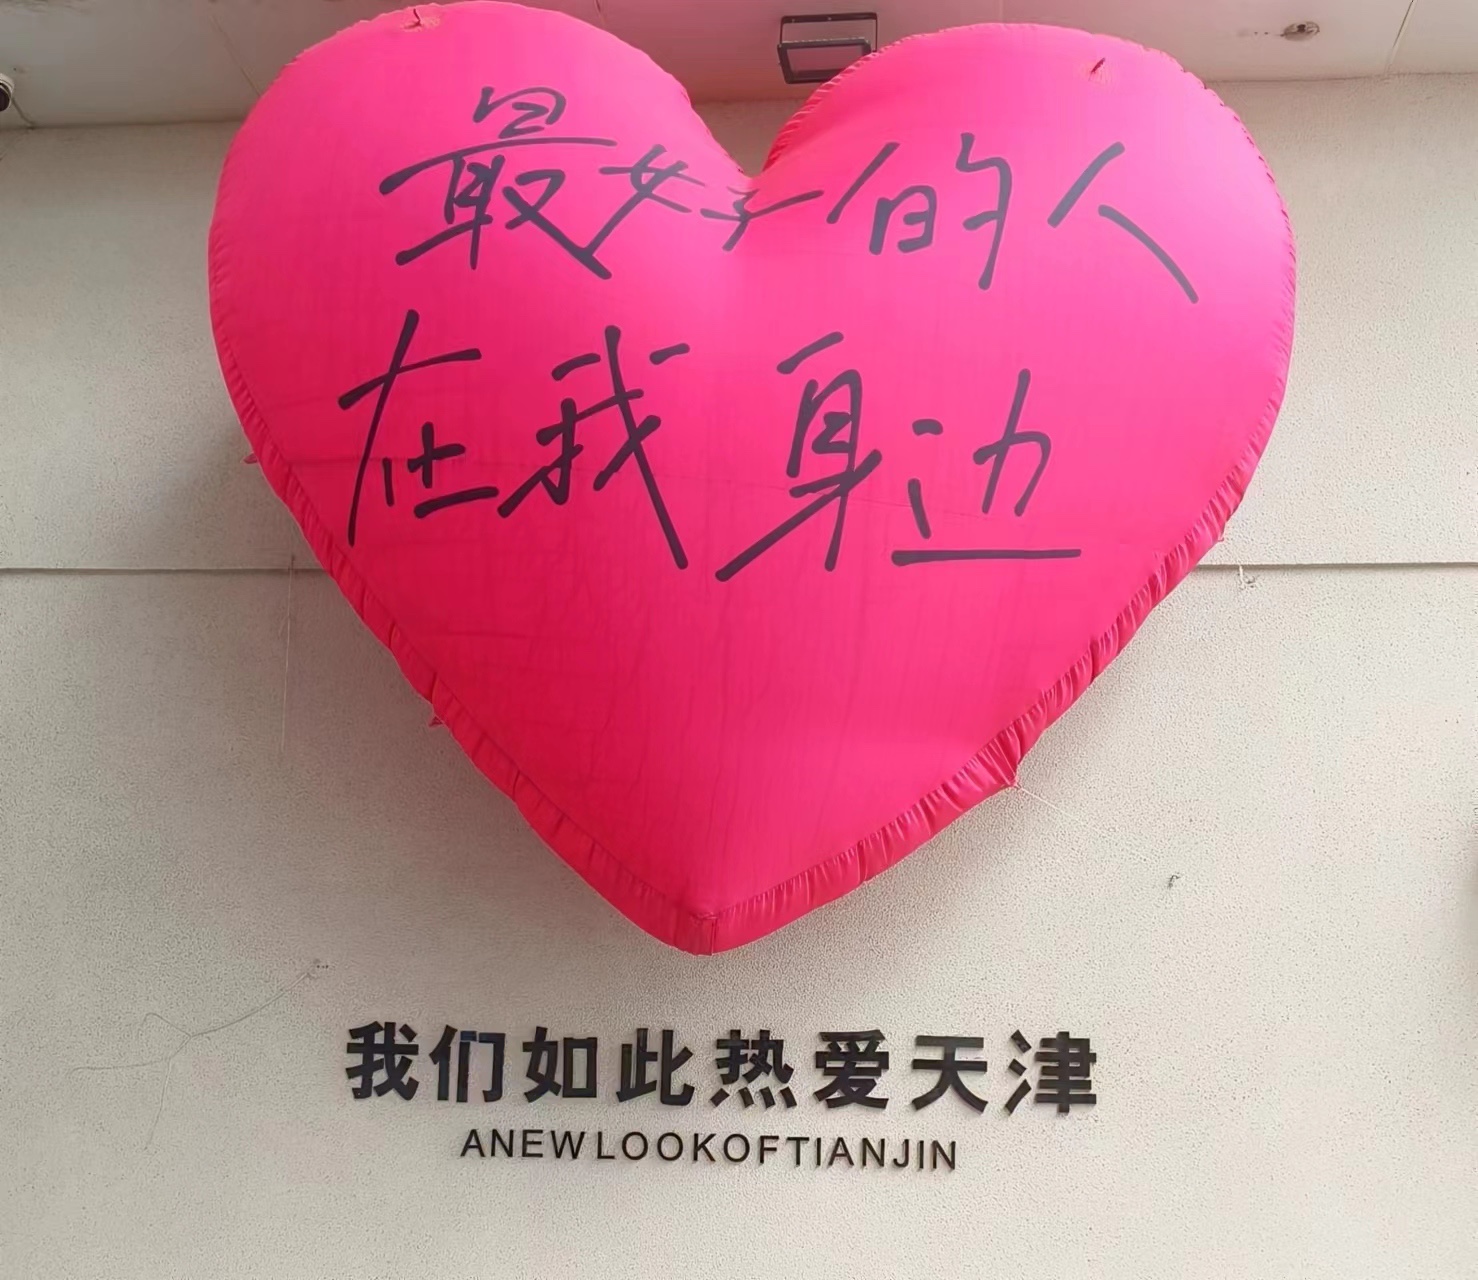 最好的人
在我身边
我们如此热爱天津
ANEWLOOKOFTIANJIN